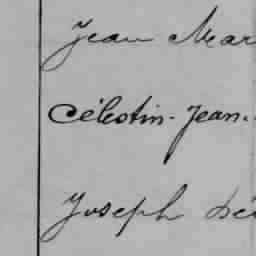 Jean Mar
Célestin-Jean-
Joseph Dé